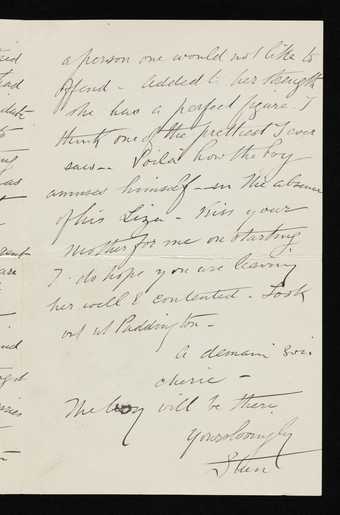 a person one would not like to
offend - Added to her strength
she has a perfect figure I
think one of the prettiest I ever
saw -. Voila how the boy
amuses himself - in the absence
of his Liza - Kiss your
Mother for me on starting
I do hope you are leaving
her well & contented - Look
out at Paddington -
a demain
cherie -
The boy will be there
Yours lovingly